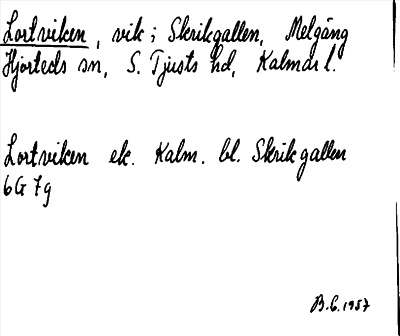 Lortviken, vik i Skrikgallen, Melgång
Hjorteds sn, S. Tjusts hd, Kalmar l.
Lortviken ek. Kalm. bl. Skrikgallen
6G 7g
B.G. 1957